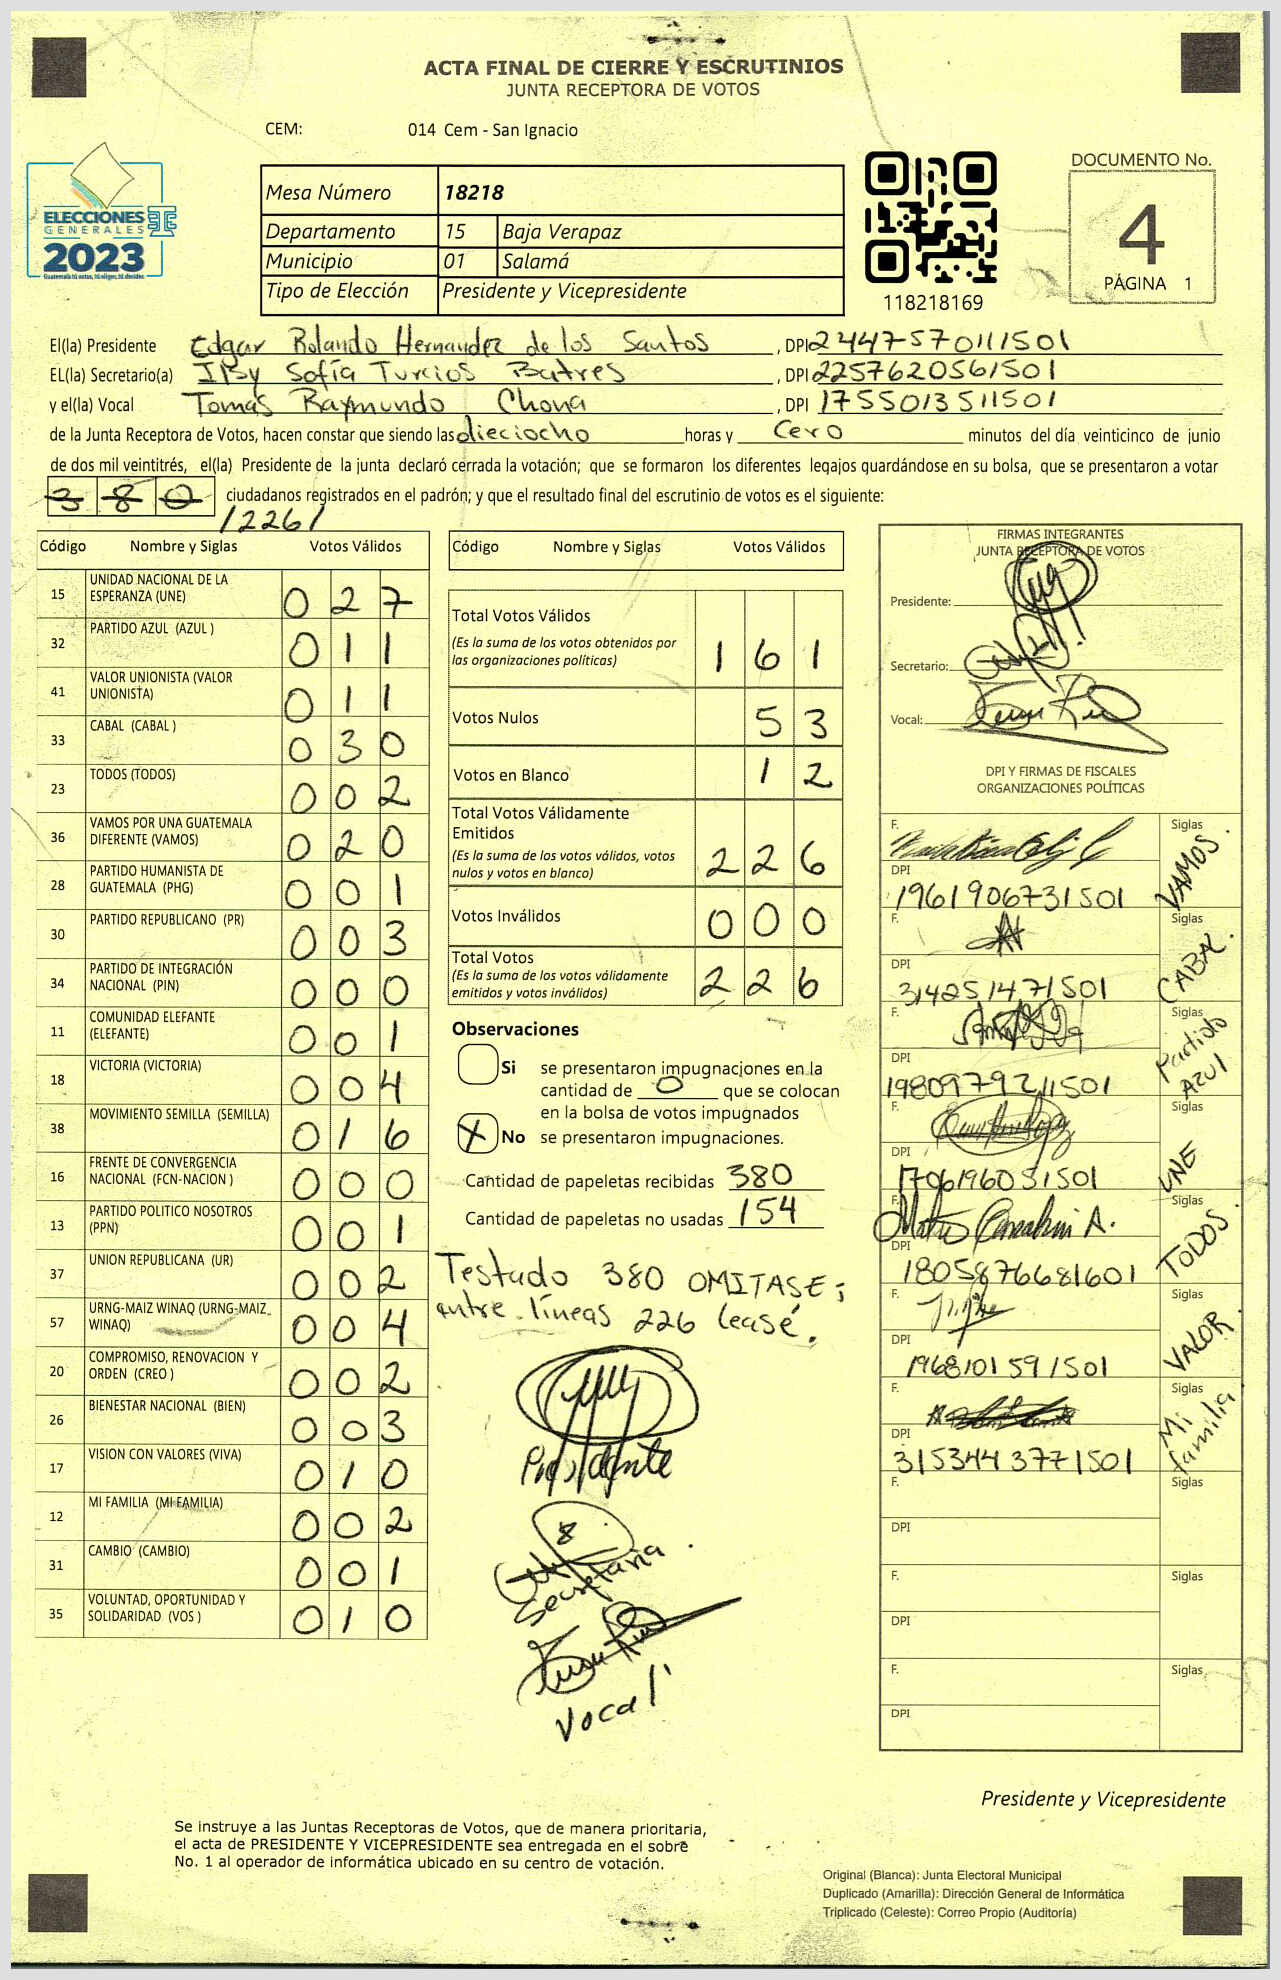 ACTA FINAL DE CIERRE Y ESCRUTINIOS
JUNTA RECEPTORA DE VOTOS
CEM: 014 Cem - San Ignacio
ELECCIONES
GENERALES
2023
Guatemala tú votas, tú eliges, tú decides
Mesa Número 18218
Departamento 15 Baja Verapaz
Municipio 01 Salamá
Tipo de Elección Presidente y Vicepresidente
118218169
DOCUMENTO No.
4
PÁGINA 1
El(la) Presidente Edgar Rolando Hernandez de los Santos , DPI 2447570111501
EL(la) Secretario(a) Sofía Turcios Batres , DPI 2257620561501
y el(la) Vocal Tomas Raymundo Chona , DPI 1755013511501
de la Junta Receptora de Votos, hacen constar que siendo las dieciocho horas y cero minutos del día veinticinco de junio
de dos mil veintitrés, el(la) Presidente de la junta declaró cerrada la votación; que se formaron los diferentes legajos guardándose en su bolsa, que se presentaron a votar
380 ciudadanos registrados en el padrón; y que el resultado final del escrutinio de votos es el siguiente:
/226/
Código Nombre y Siglas Votos Válidos
15 UNIDAD NACIONAL DE LA
ESPERANZA (UNE) 027
32 PARTIDO AZUL (AZUL ) 011
41 VALOR UNIONISTA (VALOR
UNIONISTA) 011
33 CABAL (CABAL ) 030
23 TODOS (TODOS) 002
36 VAMOS POR UNA GUATEMALA
DIFERENTE (VAMOS) 020
28 PARTIDO HUMANISTA DE
GUATEMALA (PHG) 001
30 PARTIDO REPUBLICANO (PR) 003
34 PARTIDO DE INTEGRACIÓN
NACIONAL (PIN) 000
11 COMUNIDAD ELEFANTE
(ELEFANTE) 001
18 VICTORIA (VICTORIA) 004
38 MOVIMIENTO SEMILLA (SEMILLA) 016
16 FRENTE DE CONVERGENCIA
NACIONAL (FCN-NACION ) 000
13 PARTIDO POLITICO NOSOTROS
(PPN) 001
37 UNION REPUBLICANA (UR) 002
57 URNG-MAIZ WINAQ (URNG-MAIZ_
WINAQ) 004
20 COMPROMISO, RENOVACION Y
ORDEN (CREO ) 002
26 BIENESTAR NACIONAL (BIEN) 003
17 VISION CON VALORES (VIVA) 010
12 MI FAMILIA (MI FAMILIA) 002
31 CAMBIO (CAMBIO) 001
35 VOLUNTAD, OPORTUNIDAD Y
SOLIDARIDAD (VOS ) 010
Código Nombre y Siglas Votos Válidos
Total Votos Válidos
(Es la suma de los votos obtenidos por
las organizaciones políticas) 161
Votos Nulos 53
Votos en Blanco 12
Total Votos Válidamente
Emitidos
(Es la suma de los votos válidos, votos
nulos y votos en blanco) 226
Votos Inválidos 000
Total Votos
(Es la suma de los votos válidamente
emitidos y votos inválidos) 226
Observaciones
Si se presentaron impugnaciones en la
cantidad de 0 que se colocan
en la bolsa de votos impugnados
X No se presentaron impugnaciones.
Cantidad de papeletas recibidas 380
Cantidad de papeletas no usadas 154
Testado 380 OMITASE;
entre líneas 226 leasé.
Presidente
Secretaria.
Vocal
FIRMAS INTEGRANTES
JUNTA RECEPTORA DE VOTOS
Presidente:
Secretario:
Vocal:
DPI Y FIRMAS DE FISCALES
ORGANIZACIONES POLÍTICAS
F. Siglas
DPI 1961906731501 VAMOS.
F. Siglas
DPI 314251471501 CABAL.
F. Siglas
DPI 1980979211501 Partido
AZUl
F. Siglas
DPI 1706196051501 UNE
F. Siglas
DPI 1805876681601 TODOS.
F. Siglas
DPI 1968101591501 VALOR.
F. Siglas
DPI 3153443771501 Mi
familia.
F. Siglas
DPI
F. Siglas
DPI
F. Siglas
DPI
Presidente y Vicepresidente
Se instruye a las Juntas Receptoras de Votos, que de manera prioritaria,
el acta de PRESIDENTE Y VICEPRESIDENTE sea entregada en el sobre
No. 1 al operador de informática ubicado en su centro de votación.
Original (Blanca): Junta Electoral Municipal
Duplicado (Amarilla): Dirección General de Informática
Triplicado (Celeste): Correo Propio (Auditoría)